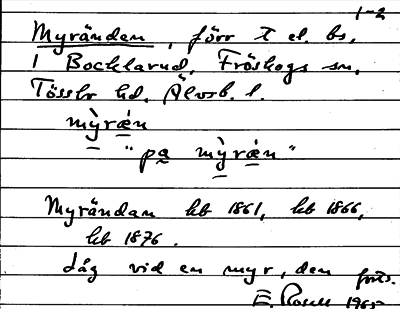 1-2
Myrändan, förr t el. bs,
i Bocklarud, Fröskogs sn,
Tössbo hd. Älvsb. l.
mỳræ̀n
"pa mỳræ̀n"
Myrändan hb 1861, hb 1866,
hb 1876.
Låg vid en myr, den forts.
E. Rosell 1965